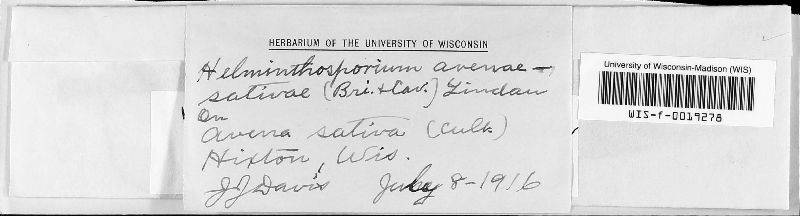 HERBARIUM OF THE UNIVERSITY OF WISCONSIN
Helminthosporium avenae-
sativae (Bri. & Cav.) Lindau
on
Avena sativa (cult.)
Hixton, Wis.
JJ Davis July 8-1916
University of Wisconsin-Madison (WIS)
WIS-f-0019278